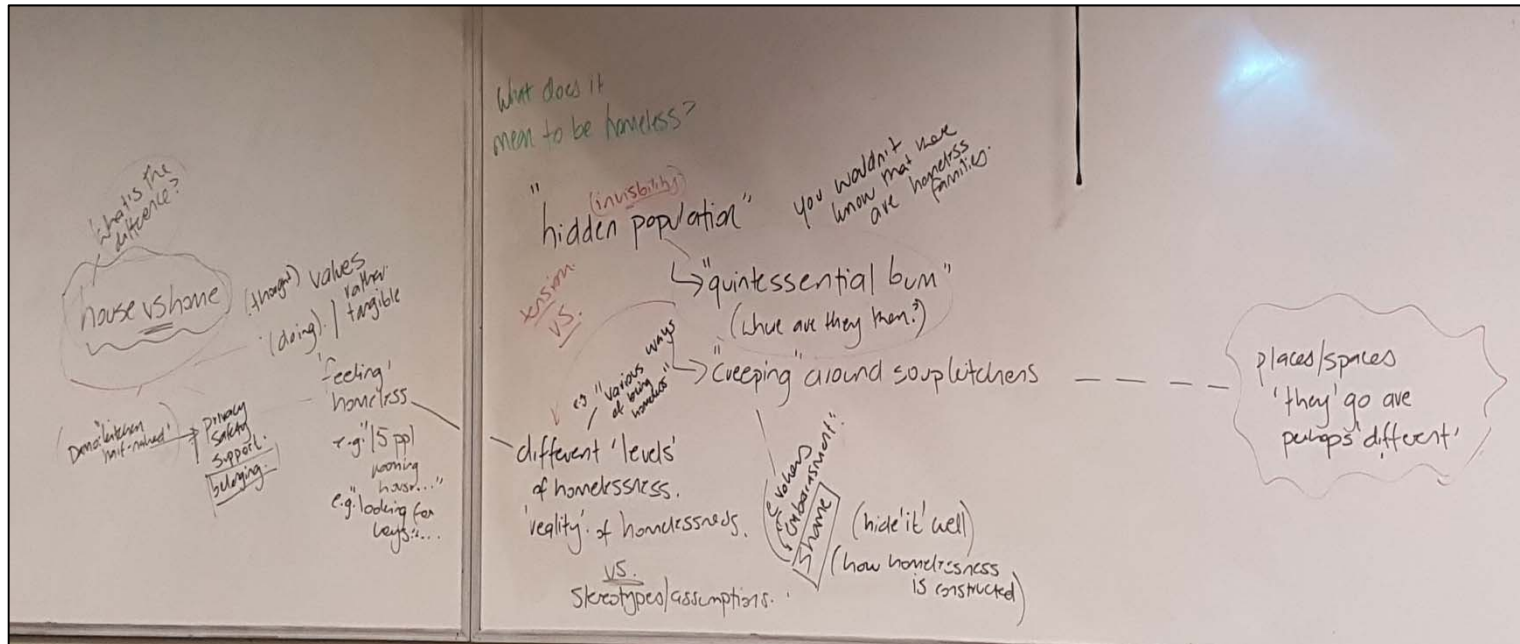 What's the
difference?
house vs home
(thought) values
(doing).
rather
tangible
'feeling'
homeless
privacy
safety
support.
belonging.
e.g. "15 ppl
house..."
e.g. "looking for
keys"...
What does it
mean to be homeless?
(invisbility)
"hidden population"
you wouldn't
know that there
are homeless
families.
"quintessential bum"
(where are they then?)
tension.
vs.
"creeping" around soup kitchens
eg "various ways
of being
homeless"
different 'levels'
of homelessness.
'reality' of homelessness.
vs.
stereotypes/assumptions.
embarrassment.
shame
(hide 'it' well)
(how homelessness
is constructed)
places/spaces
'they' go are
perhaps 'different'